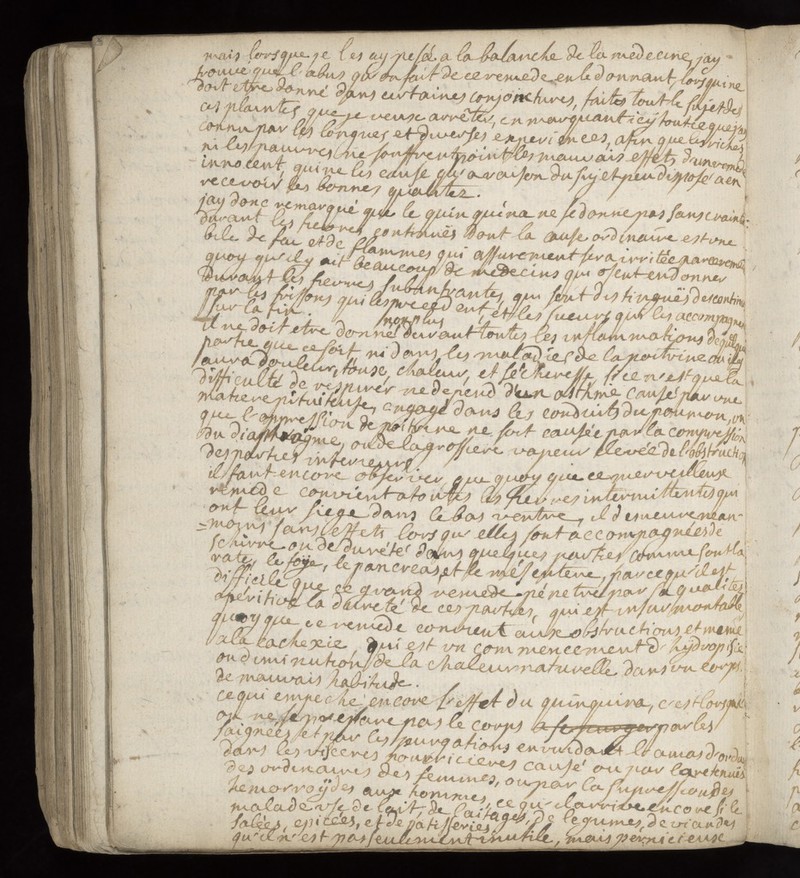 mais lorsque je les ay pesée a la balanche de la medecine, jay
trouvé que l'abus qu'on fait de ce remede, en le donnant, lorsqu'il ne
doit etre donné dans certaines conjonctures, faites tout le sujet des
ces plaintes que je veux arrêter, en marquant icy tout ce que jay
connu par les longues et diverses experiences, afin que les riches
ni les pauvres ne souffrent point les mauvais effets d'un remede
innocent, qui ne les cause qu'a raison du sujet peu disposé a en
recevoir les bonnes qualitez.
jay donc remarqué que le quinquina ne se donne pas sans crainte
durant les fievres continuës dont la cause ordinaire est une
bile de feu et de flammes qui assurement sera irritée par ce remede
quoy qu'il y ait beaucoup de medecins qui osent en donner
durant les fievres subintrantes, qui sont distinguës des continu
par les frissons qui les precedent, et les sueurs qui les accompagnent
sur la fin.
il ne doit etre donné non plus durant toutes les inflammations de quelque
partie que ce soit ni dans les maladies de la poitrine ou il y
aura douleur, touse, chaleur, et secheresse, si ce n'est que la
difficulté de respirer ne depend d'un asthme causé par une
matiere pituiteuse, engagé dans les conduits du poumon, ou
que l'oppression de poitrine ne soit causée par la compression
du diaphragme, ou de la grossiere vapeur elevée de l'obstruction
des parties interieures.
il faut encore observer, que quoy que ce merveilleuse
remede convient a toutes les fievres intermittentes qui
ont leur siege dans le bas ventre, il demeure nean-
=moins sans effets lorsqu'elles sont accompagnées de
schirre ou de dureté dans quelques parties comme sont la
rate, le foÿe, le pancreas et le mesentere, parcequ'il est
difficile que ce grand remede pénetre par sa qualités
aperitive la dureté de ces parties, qui est insurmontable
quoy que ce remede convient aux obstructions et meme
a la cachexie, qui est un commencement d'hydropisie
ou diminution de la chaleur naturelle dans un corps
de mauvais habitude.
ce qui empeche encore l'effet du quinquina, c'est lorsque
on ne se prepare pas le corps a se purger par les
saignées et par les purgations en vuidant l'amas d'ordu
dans les visceres nourricieres causé ou par la retenuës
des ordinaires des femmes, ou par la supressions des
hemorroÿdes aux hommes, ce qu'il arrive encore si le
malade use de lait, de laitages, de legumes, de viandes
salées, epicées, et de patisseries
qu'il n'est pas seulement inutile, mais pernicieuse